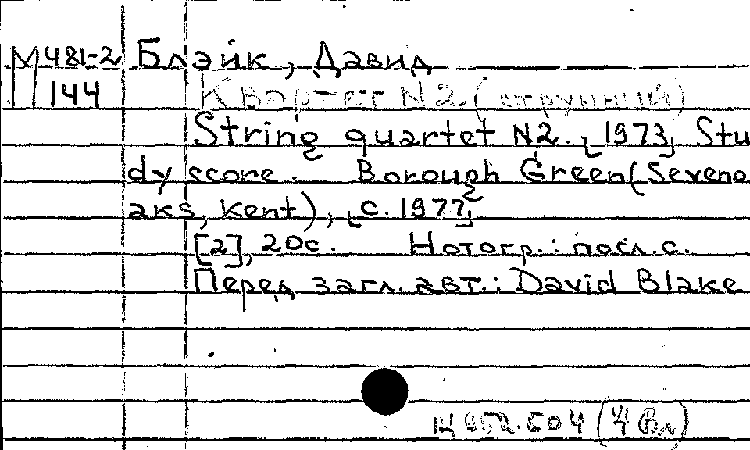 М 481-2 Блэйк, Давид
144 Квартет N2. (струнный)
String quartet N2. [1973] Stu
dy score. Borough Green (Seveno
aks, Kent), [c. 1977]
[2], 20с. Нотогр.: посл. с.
Перед загл. авт.: David Blake